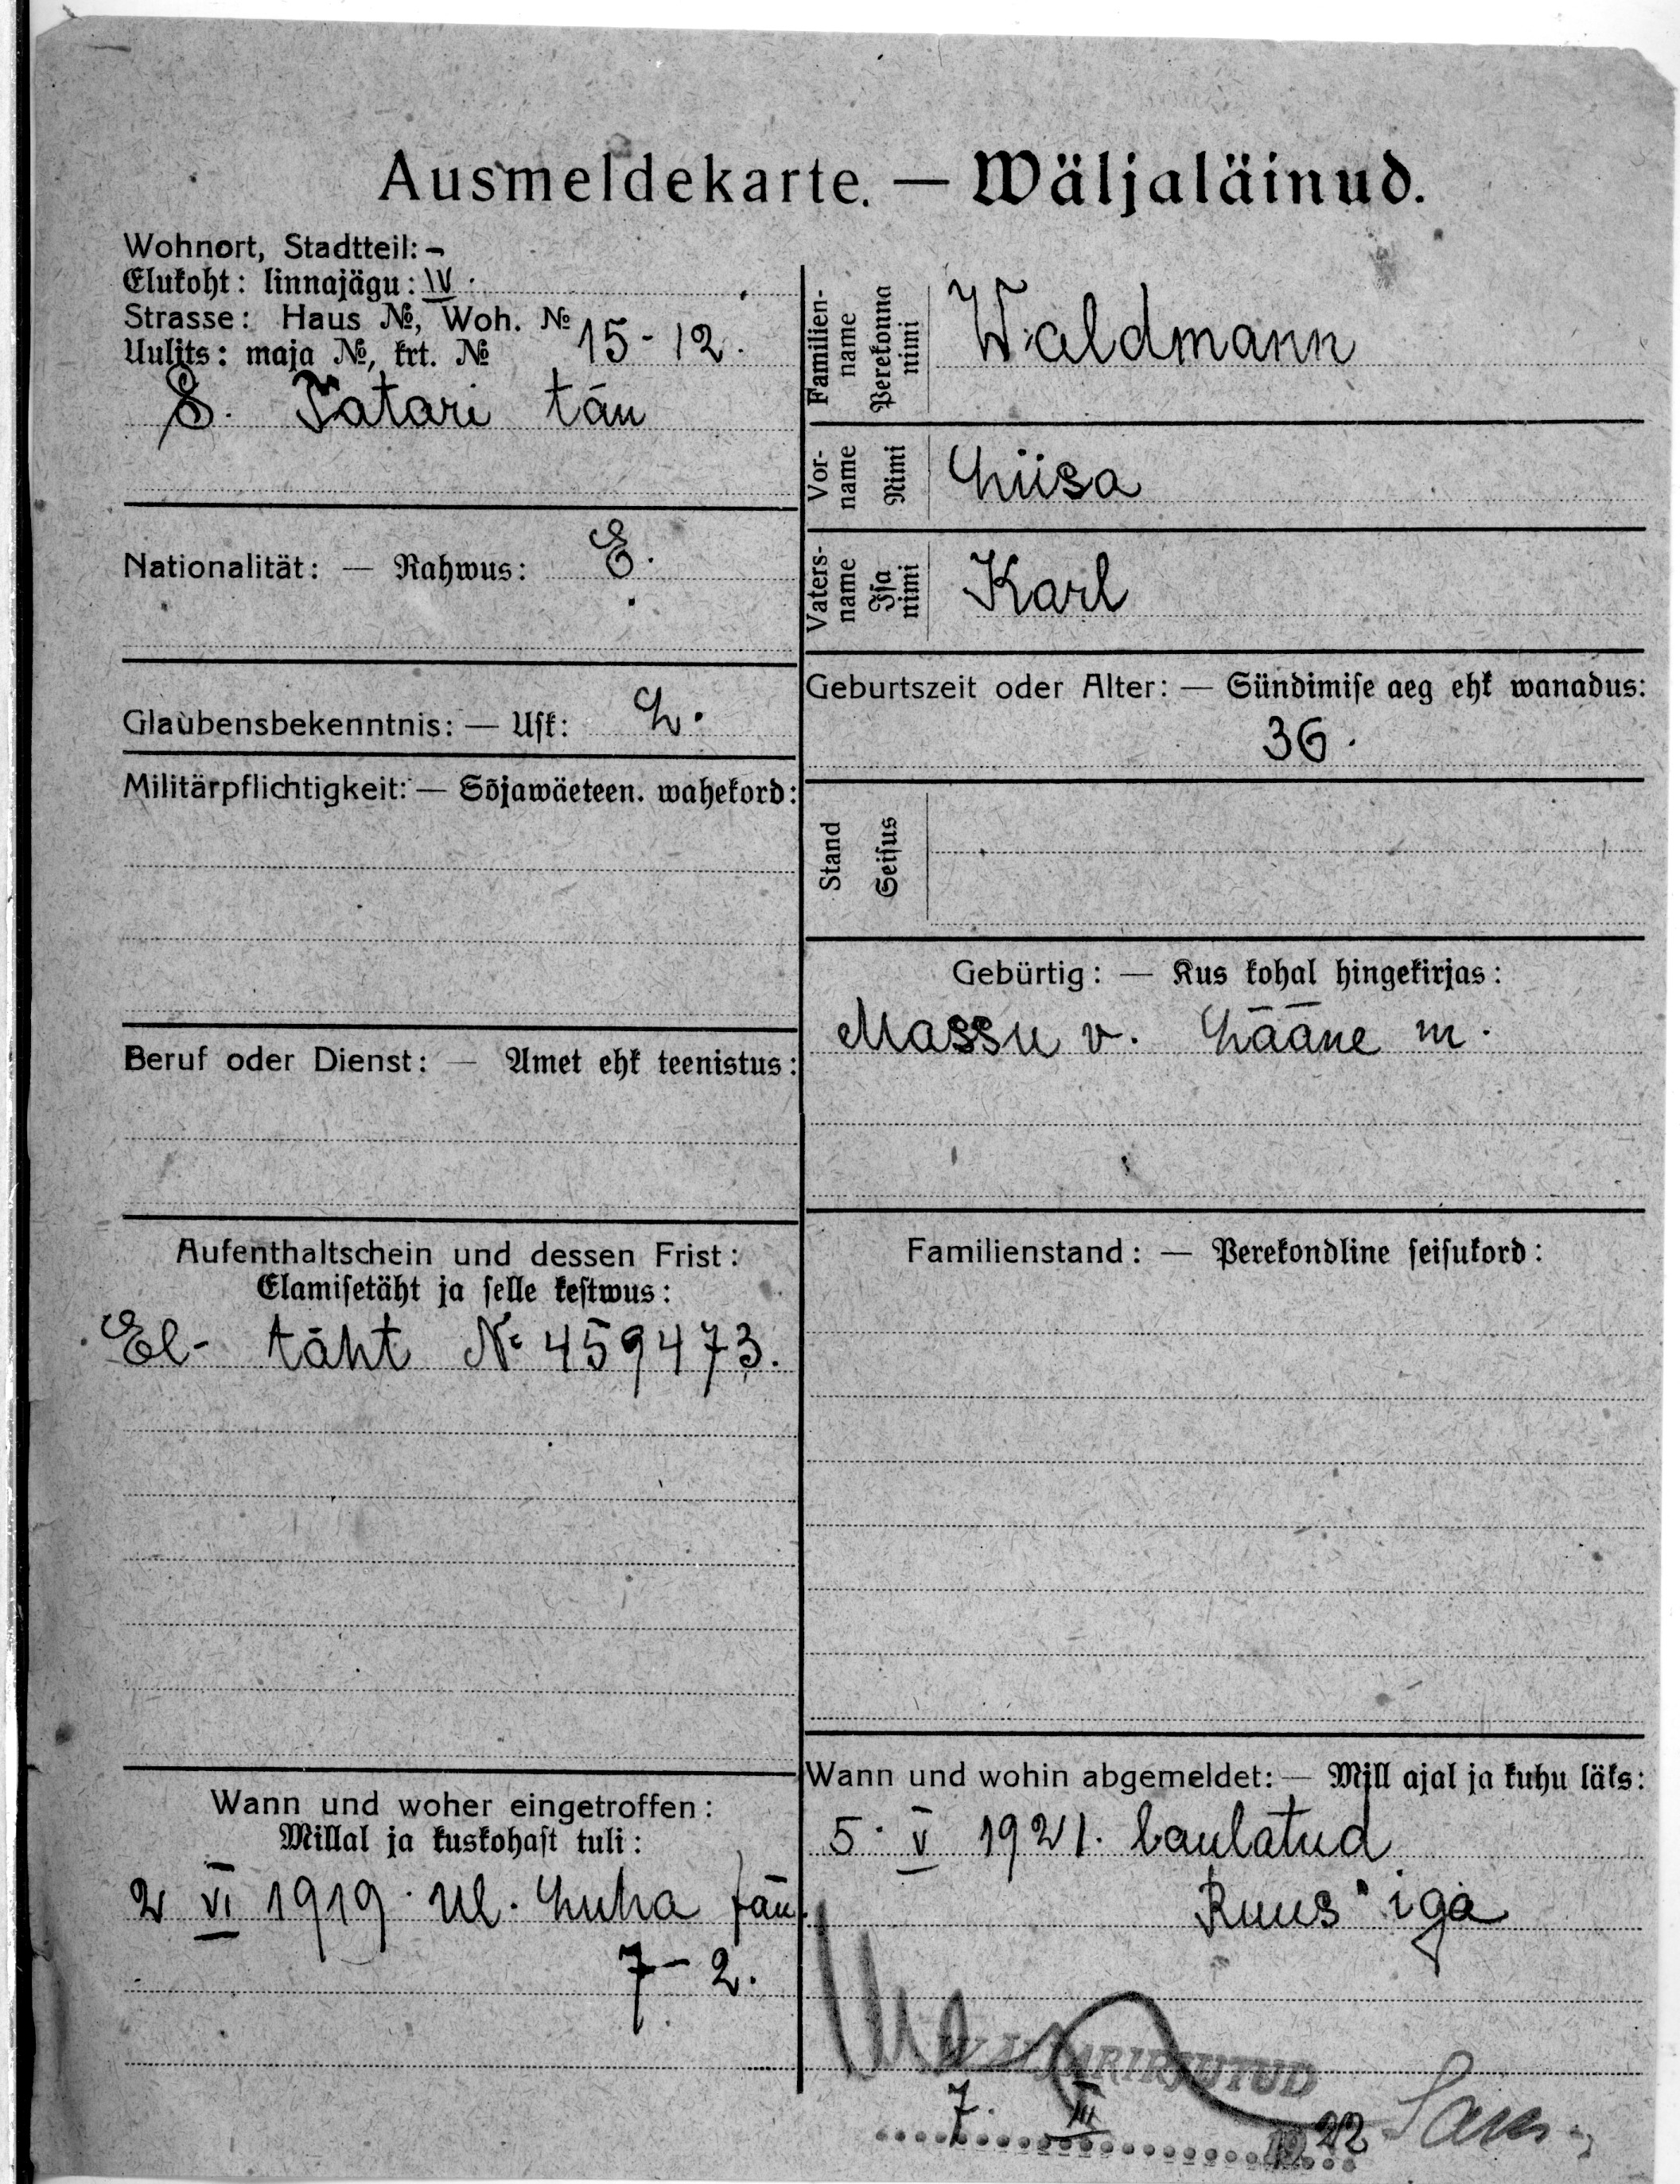 Ausmeldekarte. — Wäljaläinud.
Wohnort, Stadtteil: -
Elukoht: linnajägu: IV.
Strasse: Haus №, Woh. №
Uulits: maja №, krt. № 15-12.
S. Tatari tän
Nationalität: — Rahwus: E.
Glaubensbekenntnis: — Usk: L.
Militärpflichtigkeit: — Sõjawäeteen. wahekord:
Beruf oder Dienst: — Amet ehk teenistus:
Aufenthaltschein und dessen Frist:
Elamisetäht ja selle kestwus:
El- täht № 459473.
Wann und woher eingetroffen:
Millal ja kuskohast tuli:
2 VI 1919. Ul. Luha tän.
7-2.
Familien-
name
Perekonna
nimi
Waldmann
Vor-
name
Nimi
Liisa
Vaters-
name
Isa
nimi
Karl
Geburtszeit oder Alter: — Sündimise aeg ehk wanadus:
36.
Stand
Seisus
Gebürtig: — Kus kohal hingekirjas:
Massu v. Lääne m.
Familienstand: — Perekondline seisukord:
Wann und wohin abgemeldet: — Mill ajal ja kuhu läks:
5. V 1921. laulatud
Ruus'iga
WÄLJAKIRJUTUD
7. III 1922